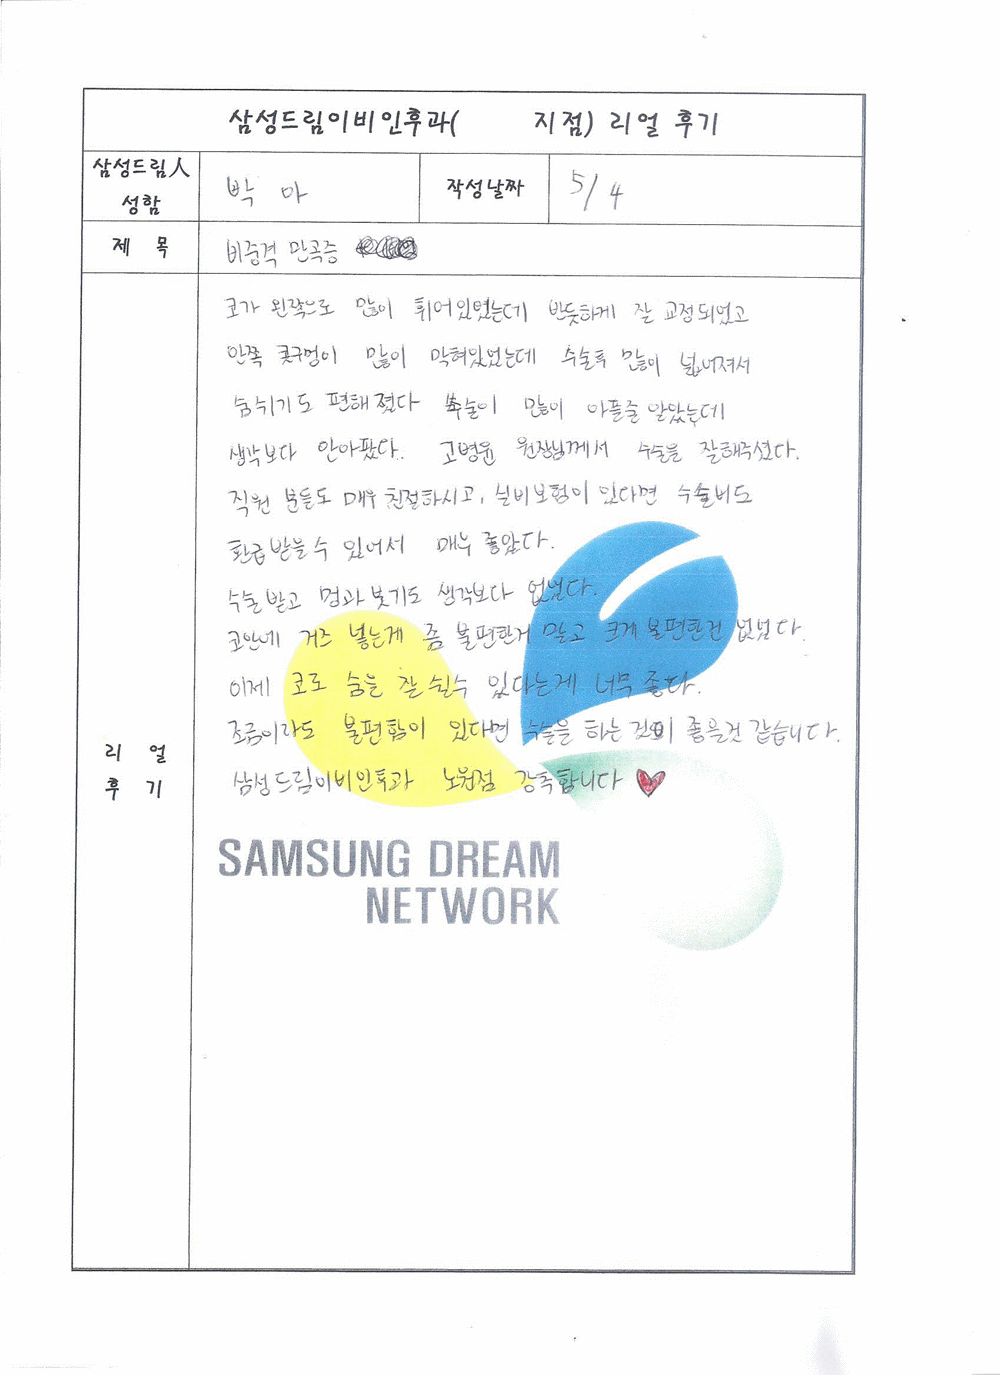 삼성드림이비인후과(        지점) 리얼 후기
삼성드림人 성함
박 아
작성날짜
5/4
제 목
비중격 만곡증
리 얼 후 기
코가 왼쪽으로 많이 휘어있었는데 반듯하게 잘 교정되었고
안쪽 콧구멍이 많이 막혀있었는데 수술후 많이 넓어져서
숨쉬기도 편해졌다 수술이 많이 아플줄 알았는데
생각보다 안아팠다. 고병윤 원장님께서 수술을 잘해주셨다.
직원 분들도 매우 친절하시고, 실비보험이 있다면 수술비도
환급 받을수 있어서 매우 좋았다.
수술 받고 멍과 붓기도 생각보다 없었다.
코안에 거즈 넣는게 좀 불편한거 말고 크게 불편한건 없었다.
이제 코로 숨을 잘 쉴수 있다는게 너무 좋다.
조금이라도 불편함이 있다면 수술을 하는 것이 좋을것 같습니다.
삼성드림이비인후과 노원점 강추합니다
SAMSUNG DREAM
NETWORK